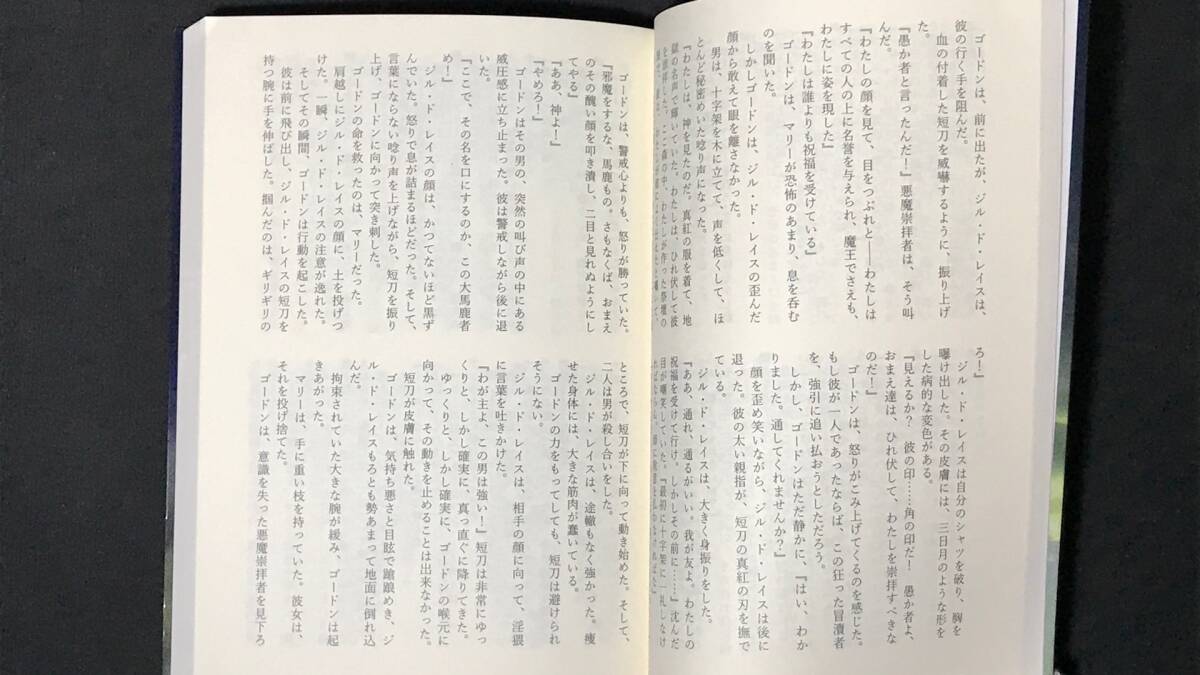 ゴードンは、前に出たが、ジル・ド・レイスは、
彼の行く手を阻んだ。
血の付着した短刀を威嚇するように、振り上げ
た。
『愚か者と言ったんだ!』悪魔崇拝者は、そう叫
んだ。
『わたしの顔を見て、目をつぶれと――わたしは
すべての人の上に名誉を与えられ、魔王でさえも、
わたしに姿を現した』
『わたしは誰よりも祝福を受けている』
ゴードンは、マリーが恐怖のあまり、息を呑む
のを聞いた。
しかしゴードンは、ジル・ド・レイスの歪んだ
顔から敢えて眼を離さなかった。
男は、十字架を木に立てて、声を低くして、ほ
とんど秘密めいた唸り声になった。
『わたしは、神を見たのだ。真紅の服を着て、地
獄の名声で輝いていた。わたしは、ひれ伏して彼
を崇拝した。この森の中、わたしが作った祭壇の
ろ!』
ジル・ド・レイスは自分のシャツを破り、胸を
曝け出した。その皮膚には、三日月のような形を
した病的な変色がある。
『見えるか? 彼の印……角の印だ! 愚か者よ、
おまえ達は、ひれ伏して、わたしを崇拝すべきな
のだ!』
ゴードンは、怒りがこみ上げてくるのを感じた。
もし彼が一人であったならば、この狂った冒瀆者
を、強引に追い払おうとしただろう。
しかし、ゴードンはただ静かに、『はい、わか
りました。通してくれませんか?』
顔を歪め笑いながら、ジル・ド・レイスは後に
退った。彼の太い親指が、短刀の真紅の刃を撫で
ている。
ジル・ド・レイスは、大きく身振りをした。
『ああ、通れ、通るがいい。我が友よ。わたしの
祝福を受けて行け。しかしその前に……』沈んだ
目が嘲笑していた。『最初に十字架に一礼しなけ
ゴードンは、警戒心よりも、怒りが勝っていた。
『邪魔をするな、馬鹿もの。さもなくば、おまえ
のその醜い顔を叩き潰し、二目と見れぬようにし
てやる』
『ああ、神よ!』
『やめろ!』
ゴードンはその男の、突然の叫び声の中にある
威圧感に立ち止まった。彼は警戒しながら後に退
いた。
『ここで、その名を口にするのか、この大馬鹿者
め!』
ジル・ド・レイスの顔は、かつてないほど黒ず
んでいた。怒りで息が詰まるほどだった。そして、
言葉にならない唸り声を上げながら、短刀を振り
上げ、ゴードンに向かって突き刺した。
ゴードンの命を救ったのは、マリーだった。
肩越しにジル・ド・レイスの顔に、土を投げつ
けた。一瞬、ジル・ド・レイスの注意が逸れた。
そしてその瞬間、ゴードンは行動を起こした。
彼は前に飛び出し、ジル・ド・レイスの短刀を
持つ腕に手を伸ばした。掴んだのは、ギリギリの
ところで、短刀が下に向って動き始めた。そして、
二人は男が殺し合いをした。
ジル・ド・レイスは、途轍もなく強かった。痩
せた身体には、大きな筋肉が蠢いている。
ゴードンの力をもってしても、短刀は避けられ
そうにない。
ジル・ド・レイスは、相手の顔に向って、淫猥
に言葉を吐きかけた。
『わが主よ、この男は強い!』短刀は非常にゆっ
くりと、しかし確実に、真っ直ぐに降りてきた。
ゆっくりと、しかし確実に、ゴードンの喉元に
向かって、その動きを止めることは出来なかった。
短刀が皮膚に触れた。
ゴードンは、気持ち悪さと目眩で蹌踉めき、ジ
ル・ド・レイスもろとも勢あまって地面に倒れ込
んだ。
拘束されていた大きな腕が緩み、ゴードンは起
きあがった。
マリーは、手に重い枝を持っていた。彼女は、
それを投げ捨てた。
ゴードンは、意識を失った悪魔崇拝者を見下ろ